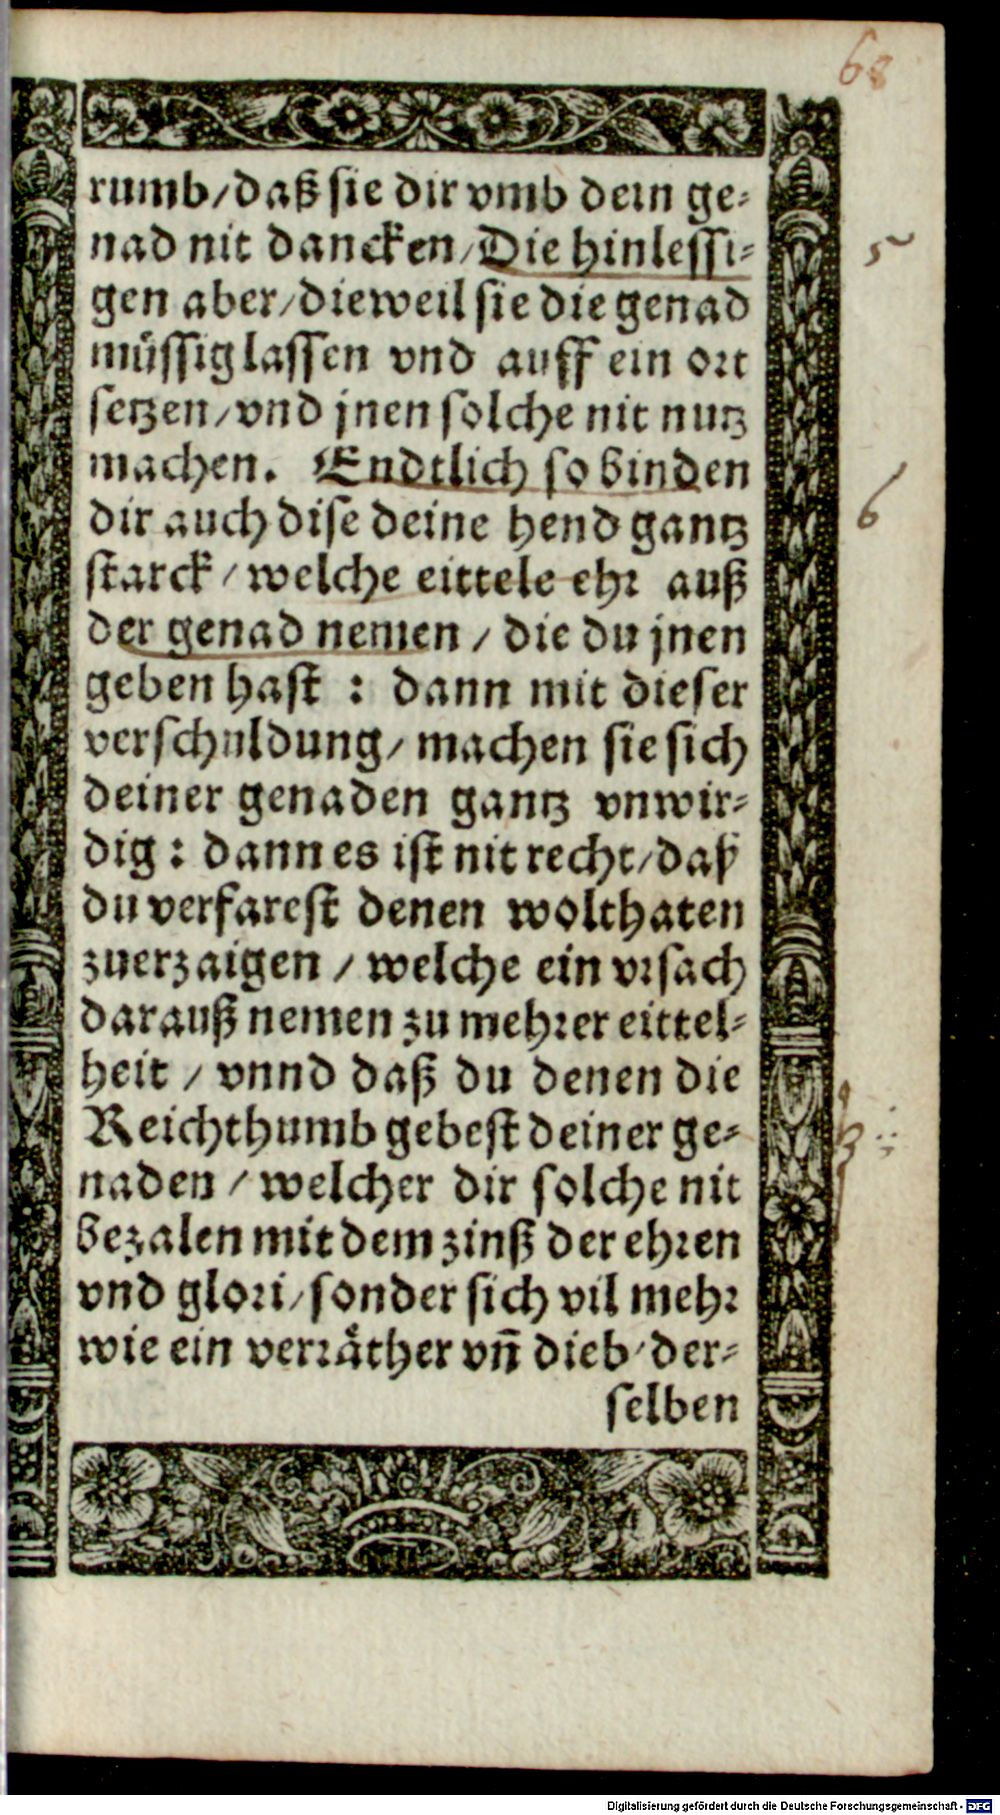 68
rumb/daß sie dir vmb dein ge-
nad nit dancken/Die hinlessi-
5
gen aber/dieweil sie die genad
müssig lassen vnd auff ein ort
setzen/vnd jnen solche nit nutz
machen. Endtlich so binden
6
dir auch dise deine hend gantz
starck/welche eittele ehr auß
der genad nemen/die du jnen
geben hast : dann mit dieser
verschuldung/machen sie sich
deiner genaden gantz vnwir-
dig : dann es ist nit recht/daß
du verfarest denen wolthaten
zuerzaigen/welche ein vrsach
darauß nemen zu mehrer eittel-
heit/vnnd daß du denen die
Reichthumb gebest deiner ge-
naden/welcher dir solche nit
bezalen mit dem zinß der ehren
vnd glori/sonder sich vil mehr
wie ein verråther vñ dieb/der-
selben
Digitalisierung gefördert durch die Deutsche Forschungsgemeinschaft - DFG